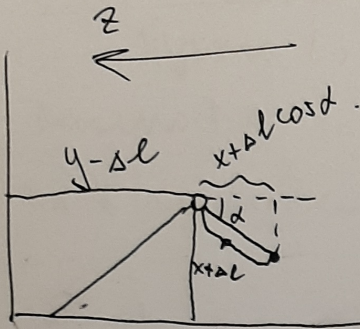 z
y-Δl
x+Δlcosα.
α
x+Δl